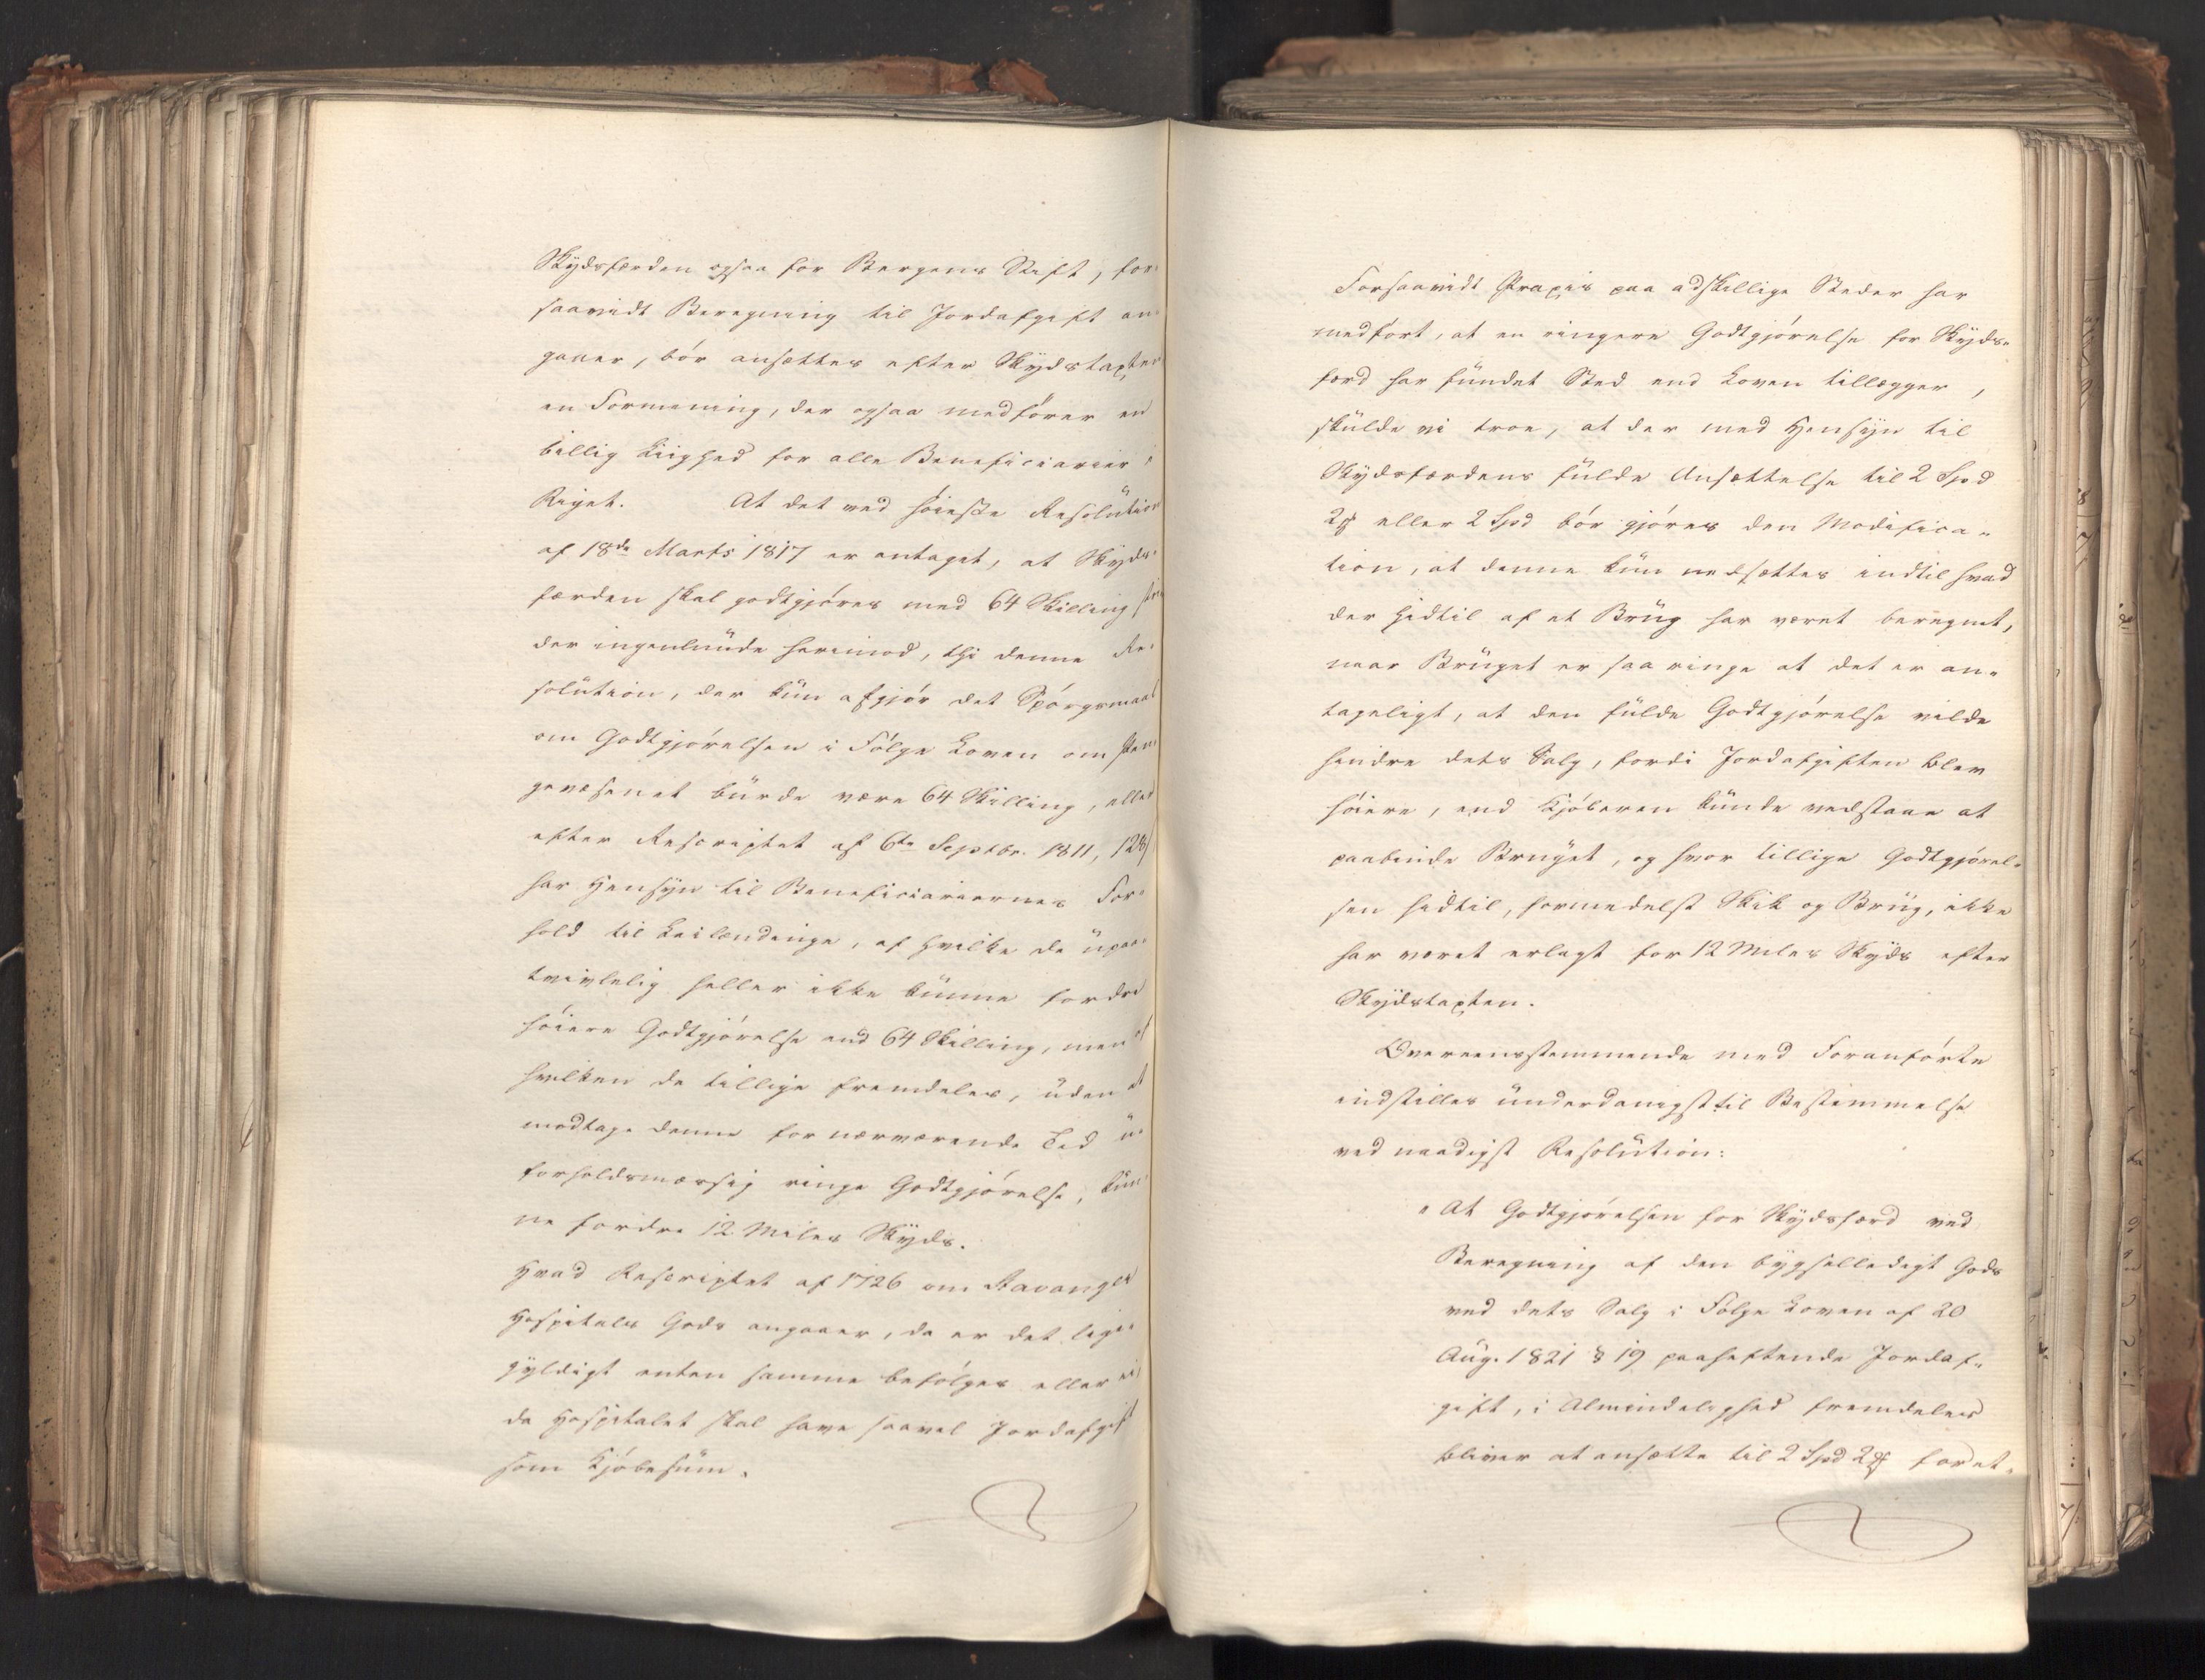 Skydsfærden ogsaa for Bergens Stift, for-
saavidt Beregning til Jordafgift an-
gaaer, bör ansættes efter Skydstaxten
en Formening, der ogsaa medförer en
billig Liighed for alle Beneficiarier i
Riget. At det ved höieste Resolution
af 18de Marts 1817 er antaget, at Skyds-
færden skal godtgjöres med 64 Skilling stri-
der ingenlunde herimod, thi denne Re-
solution, der kun afgjör det Spörgsmaal
om Godtgjörelsen i Fölge Loven om Pen-
gevæsenet burde være 64 Skilling, eller
efter Rescriptet af 6te Septbr. 1811, 128
har Hensyn til Beneficiariernes For-
hold til Leilændinge, af hvilke de upaa-
tvivlelig heller ikke kunne fordre
höiere Godtgjörelse end 64 Skilling, men af
hvilken de tillige fremdeles, uden at
modtage denne for nærværende Tid u-
forholdsmæssig ringe Godtgjörelse, kun-
ne fordre 12 Miles Skyds.
Hvad Rescriptet af 1726 om Stavanger
Hospitals Gods angaaer, da er det lige-
gyldigt enten samme befölges eller ei,
da Hospitalet skal have saavel Jordafgift
som Kjöbesum.
Forsaavidt Praxis paa adskillige Steder har
medfört, at en ringere Godtgjörelse for Skyds-
færd har fundet Sted end Loven tillægger,
skulde vi troe, at der med Hensyn til
Skydsfærdens fulde Ansættelse til 2 Spd
2 eller 2 Spd bör gjöres den Modifica-
tion, at denne kun nedsættes indtil hvad
der hidtil af et Brug har været beregnet,
naar Bruget er saa ringe at det er an-
tageligt, at den fulde Godtgjörelse vilde
hindre dets Salg, fordi Jordafgiften blev
höiere, end Kjöberen kunde vedstaae at
paabinde Bruget, og hvor tillige Godtgjörel-
sen hidtil, formedelst Skik og Brug, ikke
har været erlagt for 12 Miles Skyds efter
Skydstaxten.
Overeensstemmende med Foranförte
indstilles underdanigst til Bestemmelse
ved naadigst Resolution:
"At Godtgjörelsen for Skydsfærd ved
Beregning af den bygselledigt Gods
ved dets Salg i Fölge Loven af 20
Aug. 1821 § 19 paaheftende Jordaf-
gift, i Almindelighed fremdeles
bliver at ansætte til 2 Spd 2 for et-